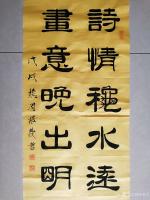 詩情穐水遠
畫意晚出明
戊戌